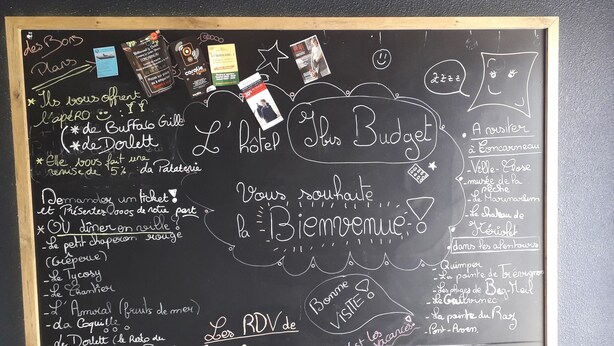 des Bons
Plans
* Ils vous offrent
l'apéRO
(* de Buffalo Grill
(* de Dorlett
* Elle vous fait une
remise de 5% : La Pataterie
Demander un ticket !
et Présentez-vous de notre part
* OÙ dîner en ville !
- Le petit chaperon rouge
(Crêperie)
- Le Tycosy
- Le Chantier
- L'Amiral (fruits de mer)
- La Coquille
- Le Dorlett (le Resto du
L'hôtel Ibis Budget
Vous souhaite
la Bienvenue !
Bonne
VISITE !
Les RDV de
et les
vacances
zzzz
* A visiter
à Concarneau
- Ville-Close
- musée de la
pêche
- Le Marinarium
- Le chateau de
Kériolet
* dans les alentours
- Quimper
- La pointe de Trévignon
- Les plages de Beg-Meil
- Le Guilvinec
- La pointe du Raz
- Pont-Aven